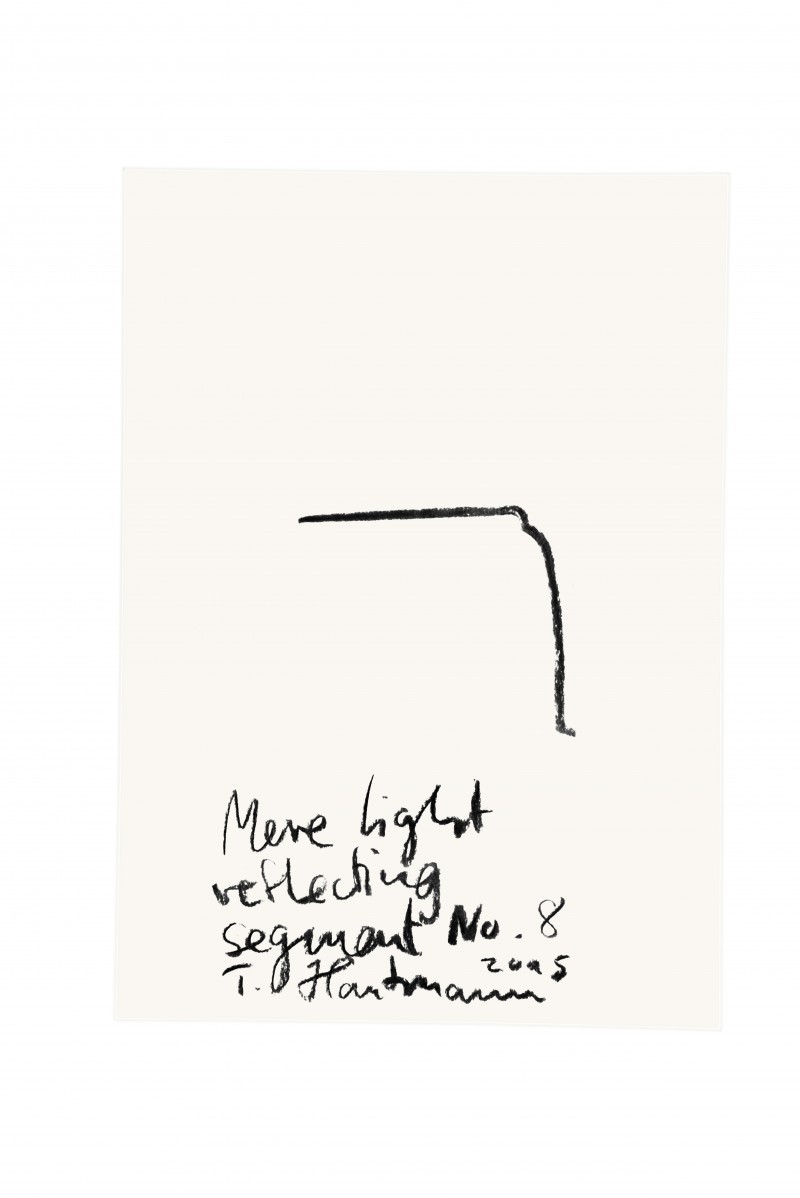 Mere light
reflecting
segment No. 8
2015
T. Hartmann